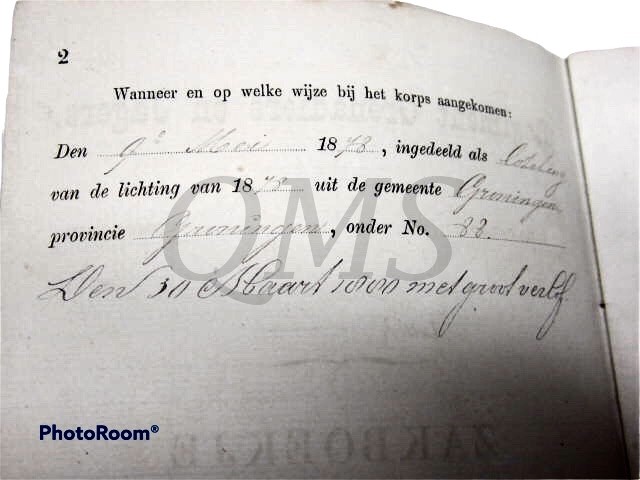 2
Wanneer en op welke wijze bij het korps aangekomen:
Den 9e Mei 1878, ingedeeld als Loteling
van de lichting van 1878 uit de gemeente Groningen
provincie Groningen, onder No. 88.
Den 30 Maart 1880 met groot verlof.
QMS
ZAKBOEKJE
PhotoRoom®